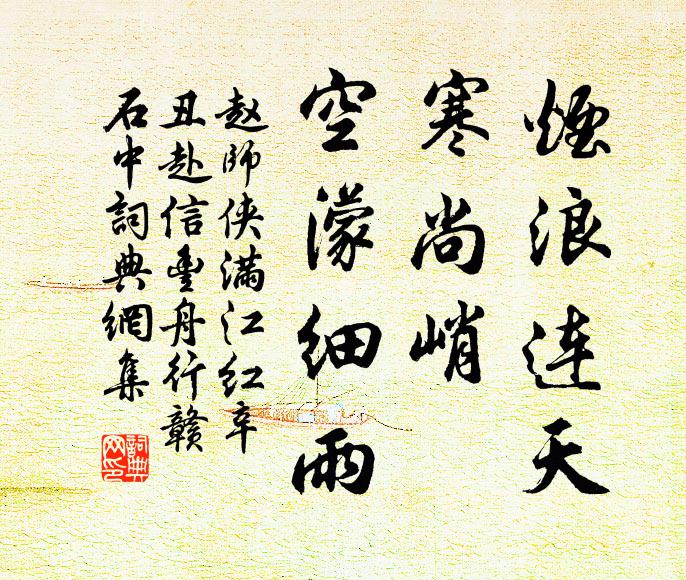 煙浪连天
寒尚峭
空濛细雨
赵師侠满江红辛
丑赴信豊舟行赣
石中詞典網集
詞典
网印